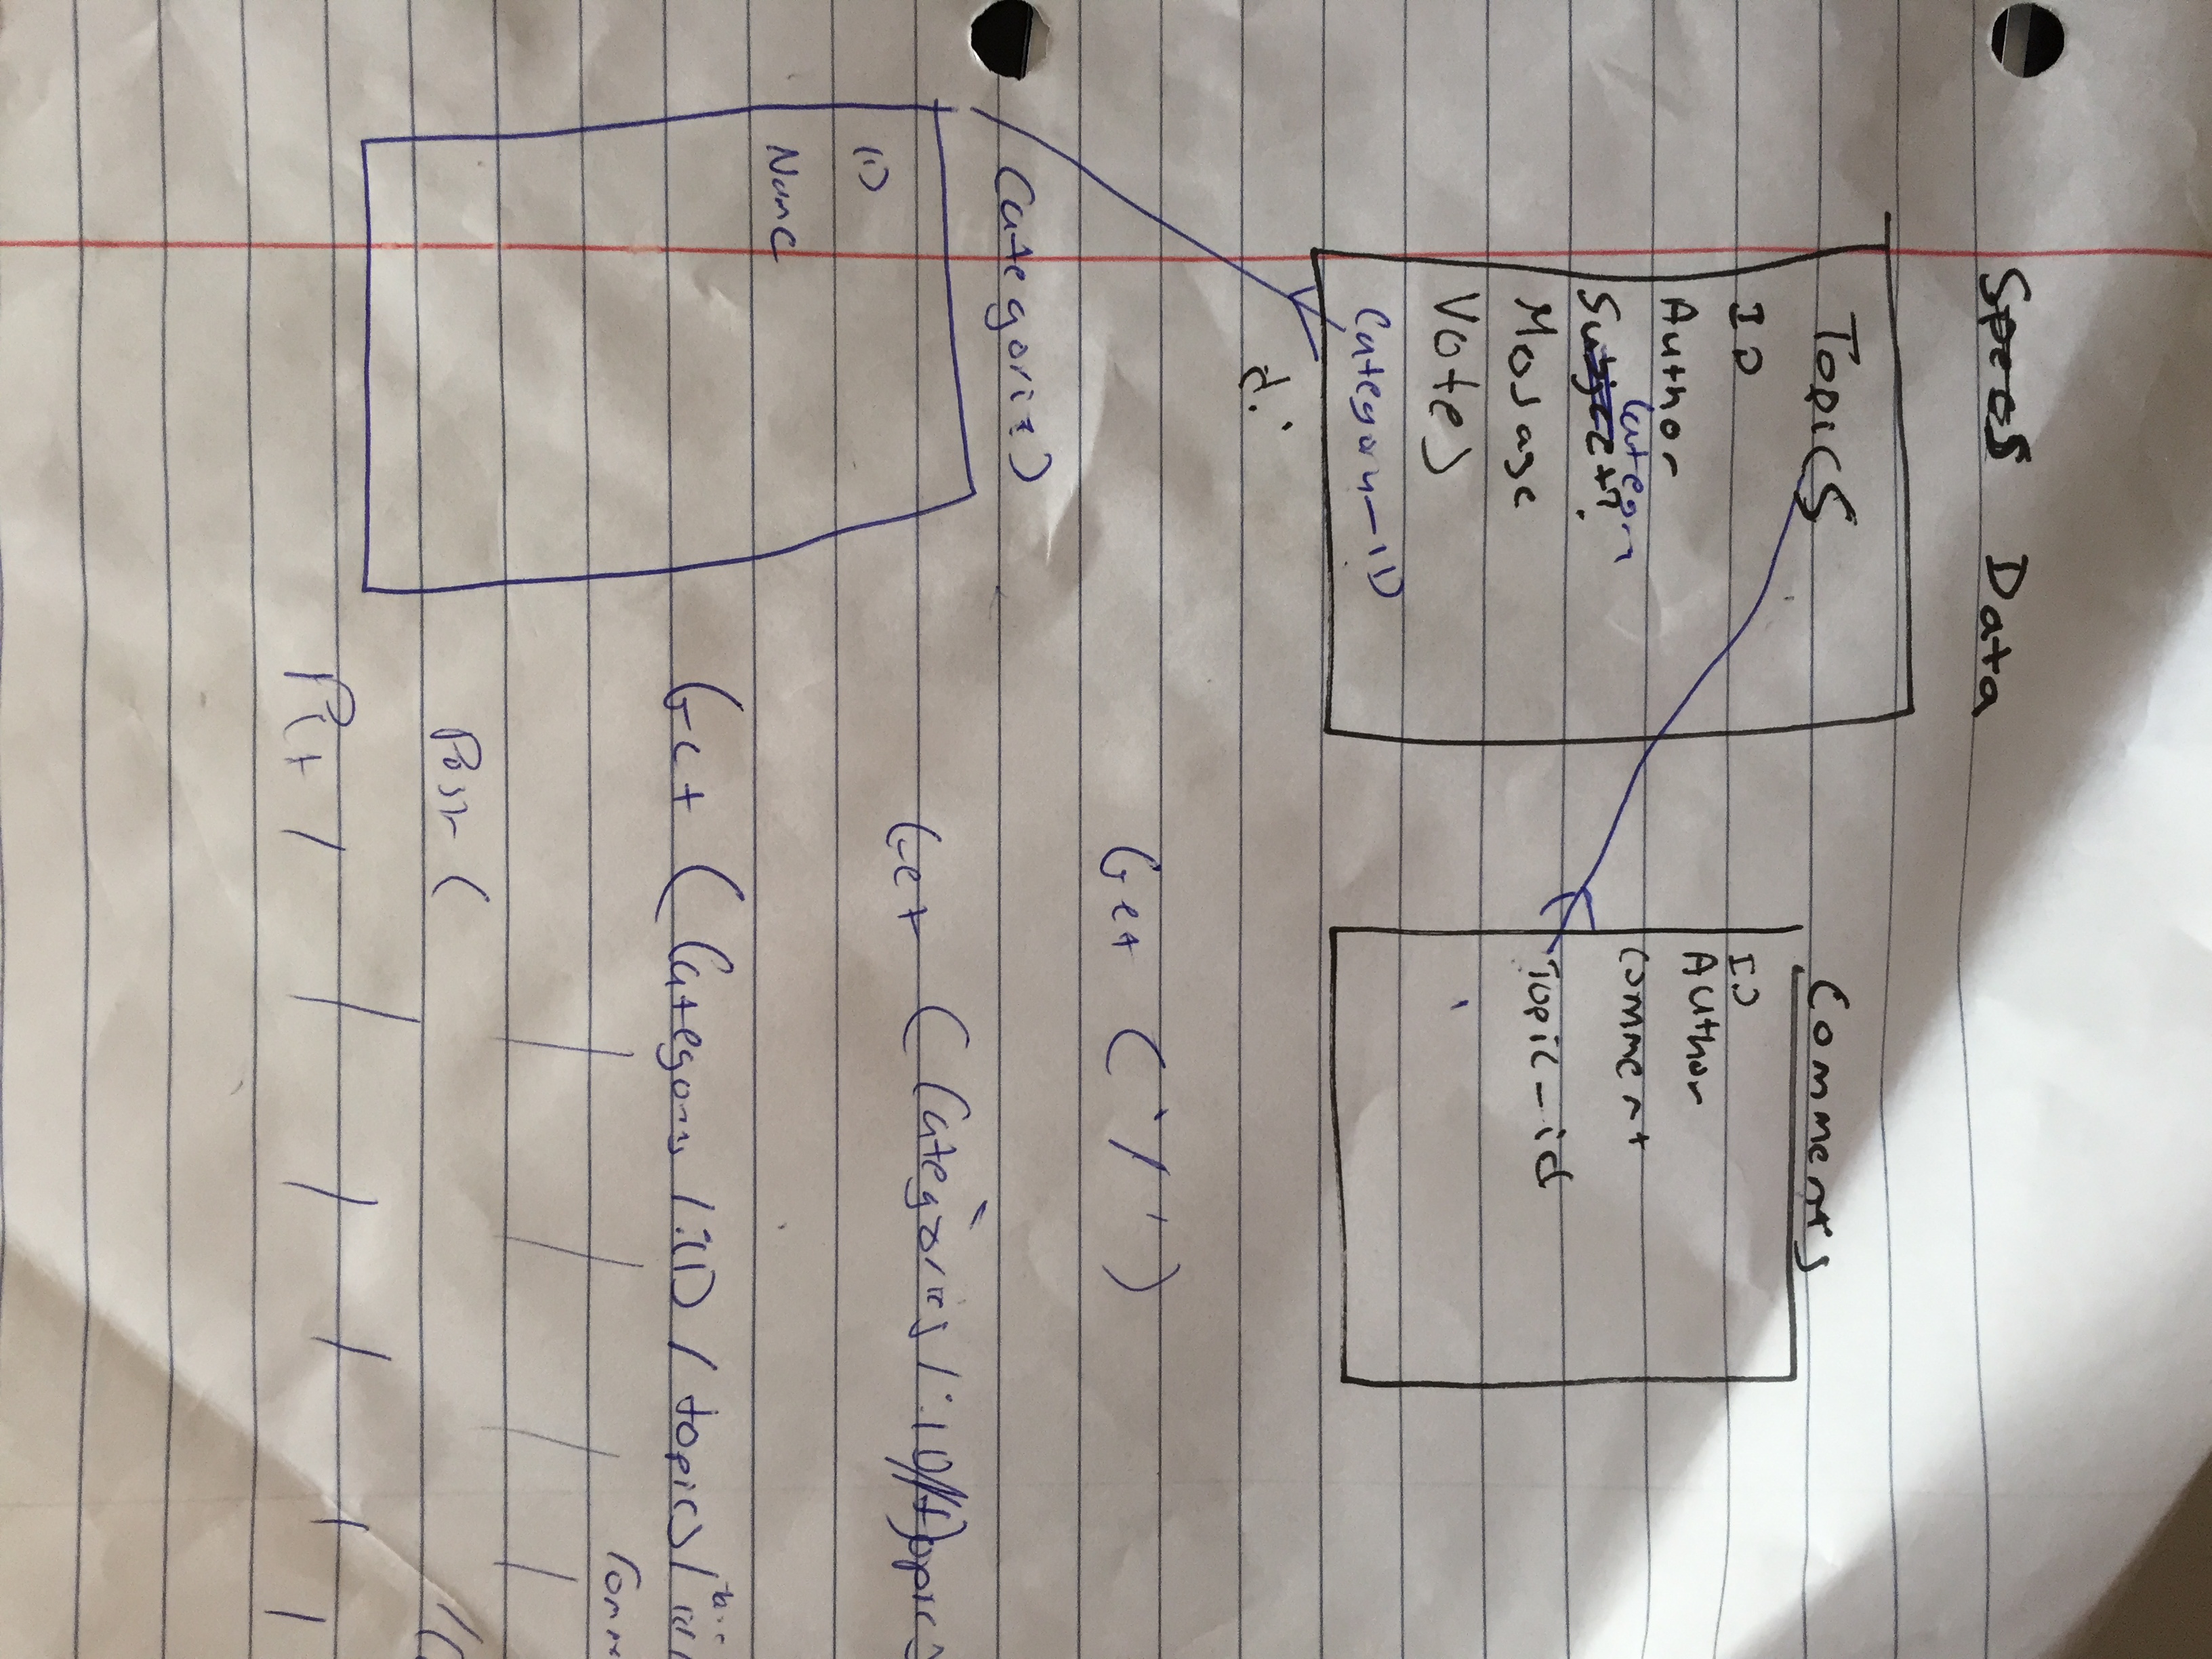 Specs Data
Topics
ID
Author
Category
Subject
Message
Votes
Category-ID
Comments
ID
Author
Comment
Topic-id
Get ('/')
Categories
ID
Name
Get (Categories/:ID/topics
Get (Category/:ID/topics/
Comm
Post (
Put /